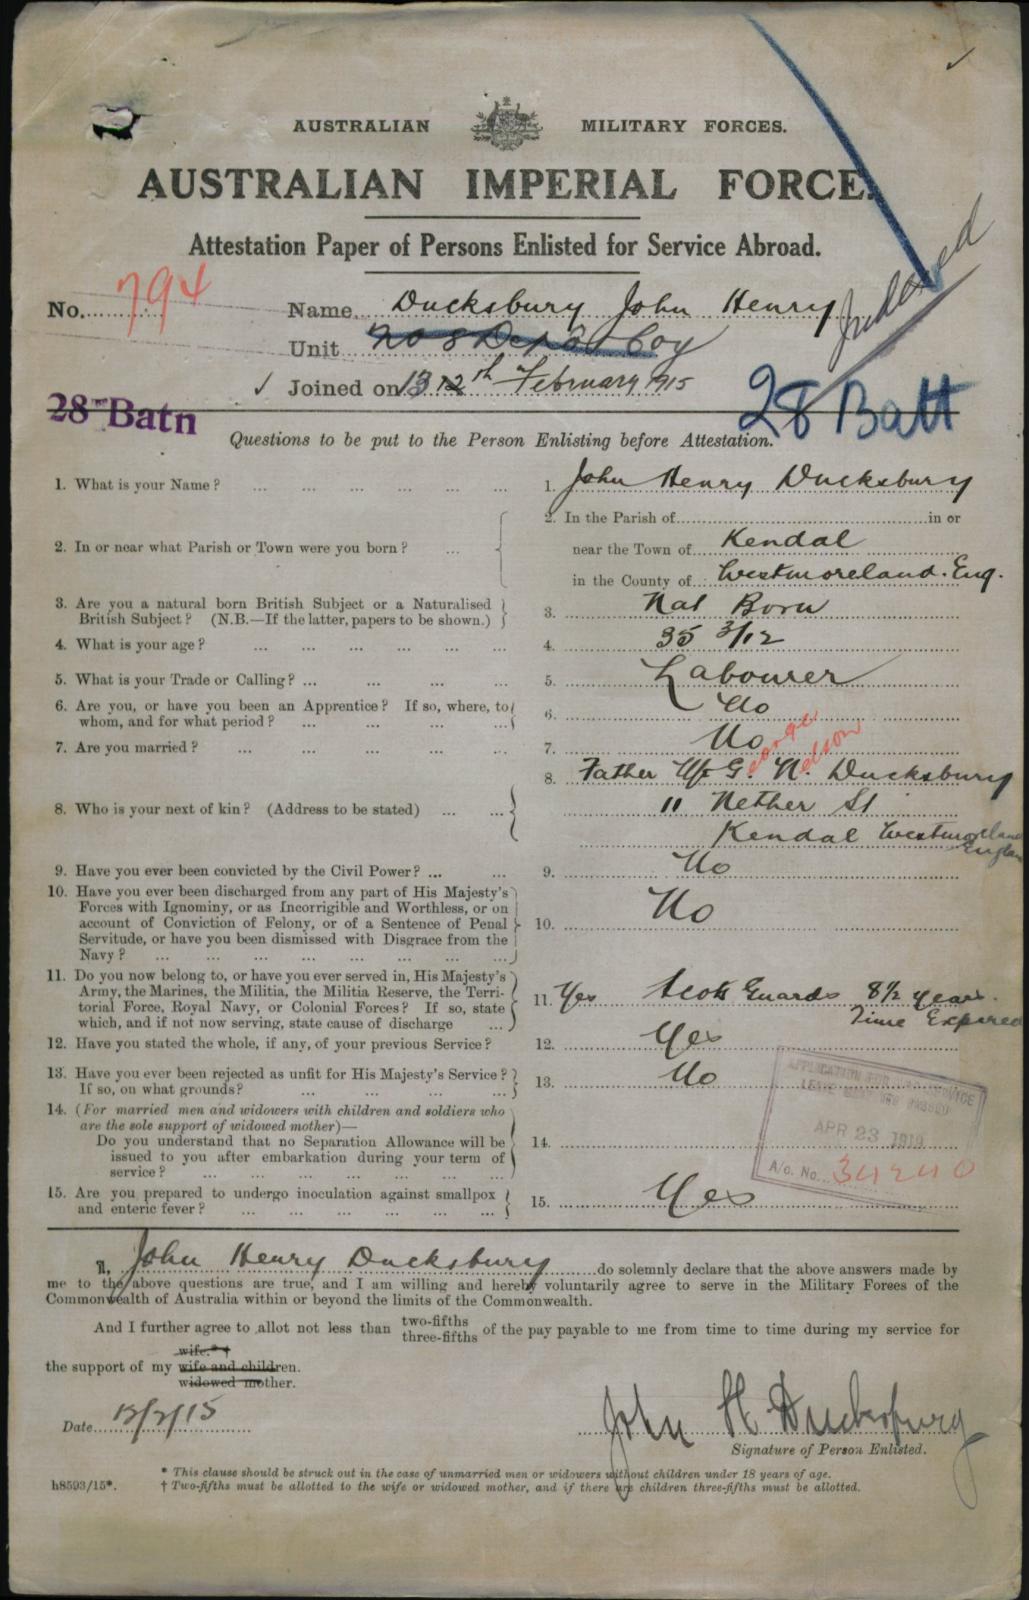 AUSTRALIAN MILITARY FORCES.
AUSTRALIAN IMPERIAL FORCE.
Attestation Paper of Persons Enlisted for Service Abroad.
No. 794 Name Ducksbury John Henry
Unit No 8 Depot Coy
Joined on 13 12th February 1915
28th Batn
28 Batt
Questions to be put to the Person Enlisting before Attestation.
1. What is your Name? ... ... ... ... ... ... 1. John Henry Ducksbury
2. In or near what Parish or Town were you born? ... 2. In the Parish of in or
near the Town of Kendal
in the County of Westmoreland. Eng.
3. Are you a natural born British Subject or a Naturalised
British Subject? (N.B.—If the latter, papers to be shown.) 3. Nat Born
4. What is your age? ... ... ... ... ... ... 4. 35 3/12
5. What is your Trade or Calling? ... ... ... ... 5. Labourer
6. Are you, or have you been an Apprentice? If so, where, to
whom, and for what period? ... ... ... ... 6. No
7. Are you married? ... ... ... ... ... 7. No
8. Who is your next of kin? (Address to be stated) ... ... 8. Father Mr George Nelson Ducksbury
11 Nether St
Kendal Westmoreland
England
9. Have you ever been convicted by the Civil Power? ... ... 9. No
10. Have you ever been discharged from any part of His Majesty's
Forces with Ignominy, or as Incorrigible and Worthless, or on
account of Conviction of Felony, or of a Sentence of Penal
Servitude, or have you been dismissed with Disgrace from the
Navy? ... ... ... ... ... ... ... ... 10. No
11. Do you now belong to, or have you ever served in, His Majesty's
Army, the Marines, the Militia, the Militia Reserve, the Terri-
torial Force, Royal Navy, or Colonial Forces? If so, state
which, and if not now serving, state cause of discharge ... 11. Yes Scots Guards 8½ years.
Time Expired
12. Have you stated the whole, if any, of your previous Service? 12. Yes
13. Have you ever been rejected as unfit for His Majesty's Service?
If so, on what grounds? ... ... ... ... 13. No
14. (For married men and widowers with children and soldiers who
are the sole support of widowed mother)—
Do you understand that no Separation Allowance will be
issued to you after embarkation during your term of
service? ... ... ... ... ... ... ... 14.
APPLICATION FOR SERVICE
LEAVE
APR 23 1919
A/c. No. 34240
15. Are you prepared to undergo inoculation against smallpox
and enteric fever? ... ... ... ... ... ... 15. Yes
I, John Henry Ducksbury do solemnly declare that the above answers made by
me to the above questions are true, and I am willing and hereby voluntarily agree to serve in the Military Forces of the
Commonwealth of Australia within or beyond the limits of the Commonwealth.
And I further agree to allot not less than two-fifths three-fifths of the pay payable to me from time to time during my service for
wife.*†
the support of my wife and children.
widowed mother.
Date 12/2/15
John H Ducksbury
Signature of Person Enlisted.
* This clause should be struck out in the case of unmarried men or widowers without children under 18 years of age.
h8593/15*. † Two-fifths must be allotted to the wife or widowed mother, and if there are children three-fifths must be allotted.